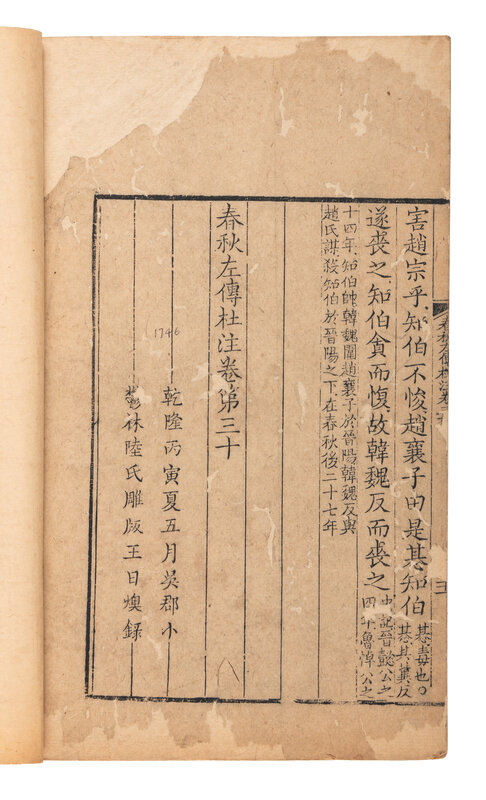 害趙宗乎知伯不悛趙襄子由是惎知伯
惎毒也○
惎其兾反
遂喪之知伯貪而愎故韓魏反而喪之
史記晉懿公之
四年魯悼公之
十四年知伯帥韓魏圍趙襄子於晉陽韓魏反與
趙氏謀殺知伯於晉陽之下在春秋後二十七年
春秋左傳杜注卷第三十
1746
乾隆丙寅夏五月吳郡小
林陸氏雕版王日燠錄